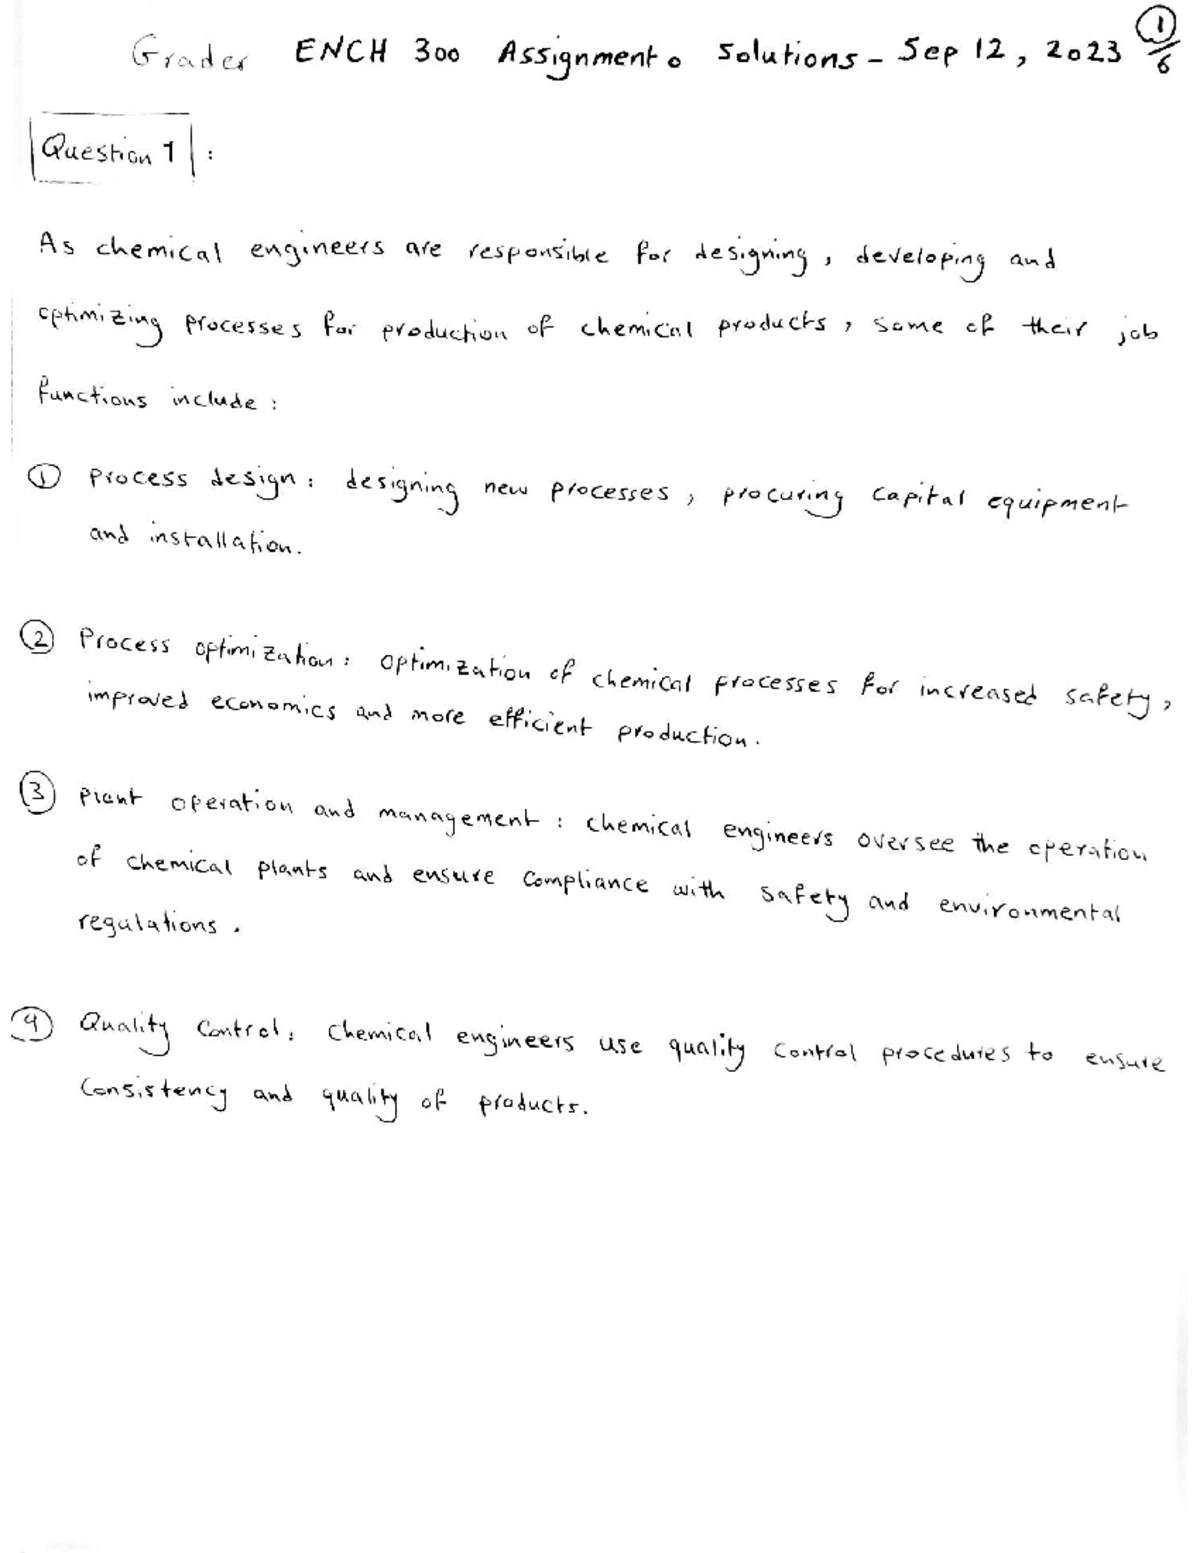 Grader ENCH 300 Assignment 0 Solutions - Sep 12, 2023 1/6
Question 1 :
As chemical engineers are responsible for designing, developing and
optimizing processes for production of chemical products, some of their job
functions include :
① Process design : designing new processes, procuring capital equipment
and installation.
② Process optimization : optimization of chemical processes for increased safety,
improved economics and more efficient production.
③ Plant operation and management : chemical engineers oversee the operation
of chemical plants and ensure compliance with safety and environmental
regulations.
④ Quality Control : Chemical engineers use quality control procedures to ensure
Consistency and quality of products.